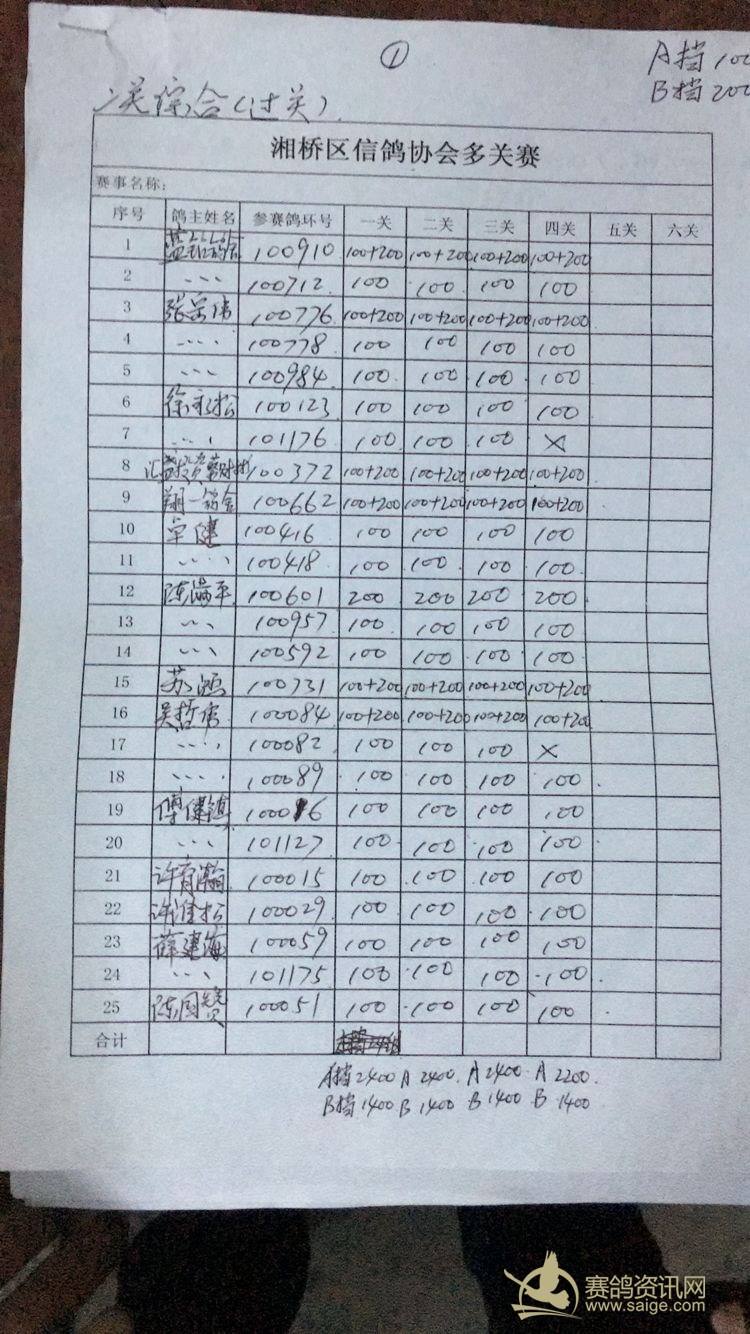 ①
A挡 100
B挡 200
二关综合(过关)
湘桥区信鸽协会多关赛
赛事名称:
序号 鸽主姓名 参赛鸽环号 一关 二关 三关 四关 五关 六关
1 100910 100+200 100+200 100+200 100+200
2 、、、 100712 100 100 100 100
3 张 伟 100776 100+200 100+200 100+200 100+200
4 、、、、 100778 100 100 100 100
5 、、、 100984 100 100 100 100
6 徐 松 100123 100 100 100 100
7 、、、 101176 100 100 100 ×
8 100372 100+200 100+200 100+200 100+200
9 翔一鸽舍 100662 100+200 100+200 100+200 100+200
10 卓健 100416 100 100 100 100
11 、、、、 100418 100 100 100 100
12 陈满平 100601 200 200 200 200
13 、、、 100957 100 100 100 100
14 、、、 100592 100 100 100 100
15 苏 100731 100+200 100+200 100+200 100+200
16 吴哲伟 100084 100+200 100+200 100+200 100+200
17 、、、、 100082 100 100 100 ×
18 、、、、 100089 100 100 100 100
19 傅健镇 100016 100 100 100 100
20 、、、 101127 100 100 100 100
21 许育瀚 100015 100 100 100 100
22 许准松 100029 100 100 100 100
23 薛建海 100059 100 100 100 100
24 、、、 101175 100 100 100 100
25 陈国贤 100051 100 100 100 100
合计
A挡2400 A 2400. A 2400. A 2200.
B挡1400 B 1400 B 1400 B 1400
赛鸽资讯网
www.saige.com